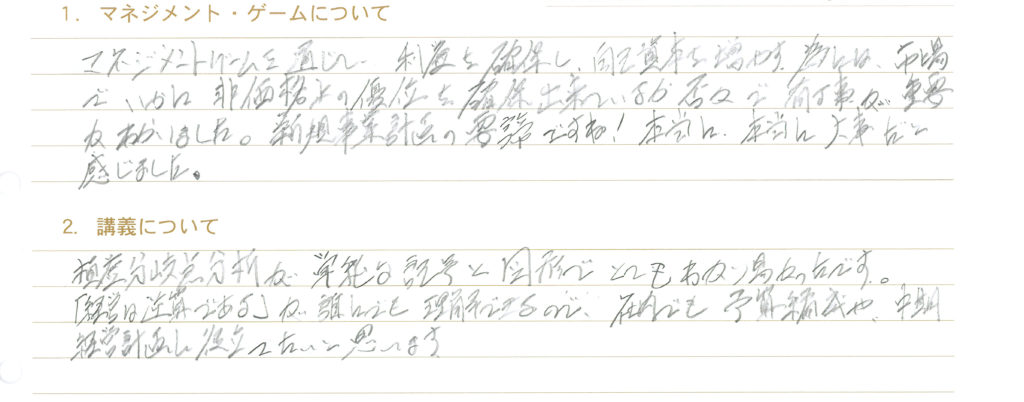 1. マネジメント・ゲームについて
マネジメントゲームを通じて 利益を確保し、自己資本を増やす為には、市場
でいかに非価格との優位を確保出来ているか否かで 何事が重要
かわかりました。新規事業計画の要諦ですね！本当に、本当に大事だと
感じました。
2. 講義について
損益分岐点分析が 単純な記号と図形で とてもわかり易かったです。
「経営は逆算である」が 誰にでも理解できるので、社内でも 予算編成や、中期
経営計画に役立てたいと思います